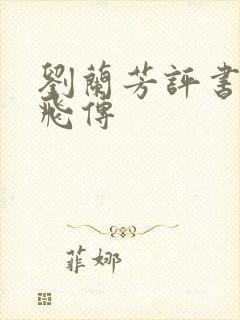 劉蘭芳評書
飛傳
菲娜